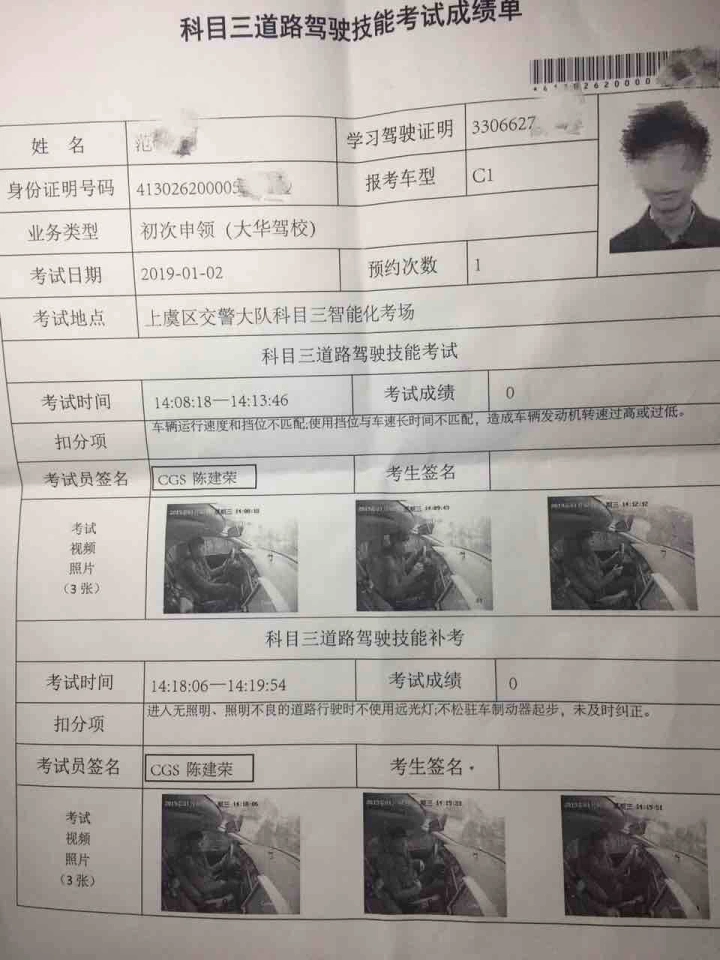 科目三道路驾驶技能考试成绩单
姓 名 范 学习驾驶证明 3306627
身份证明号码 41302620000 报考车型 C1
业务类型 初次申领（大华驾校）
考试日期 2019-01-02 预约次数 1
考试地点 上虞区交警大队科目三智能化考场
科目三道路驾驶技能考试
考试时间 14:08:18—14:13:46 考试成绩 0
扣分项 车辆运行速度和挡位不匹配;使用挡位与车速长时间不匹配，造成车辆发动机转速过高或过低。
考试员签名 CGS 陈建荣 考生签名
考试
视频
照片
（3 张）
科目三道路驾驶技能补考
考试时间 14:18:06—14:19:54 考试成绩 0
扣分项 进入无照明、照明不良的道路行驶时不使用远光灯;不松驻车制动器起步，未及时纠正。
考试员签名 CGS 陈建荣 考生签名
考试
视频
照片
（3 张）